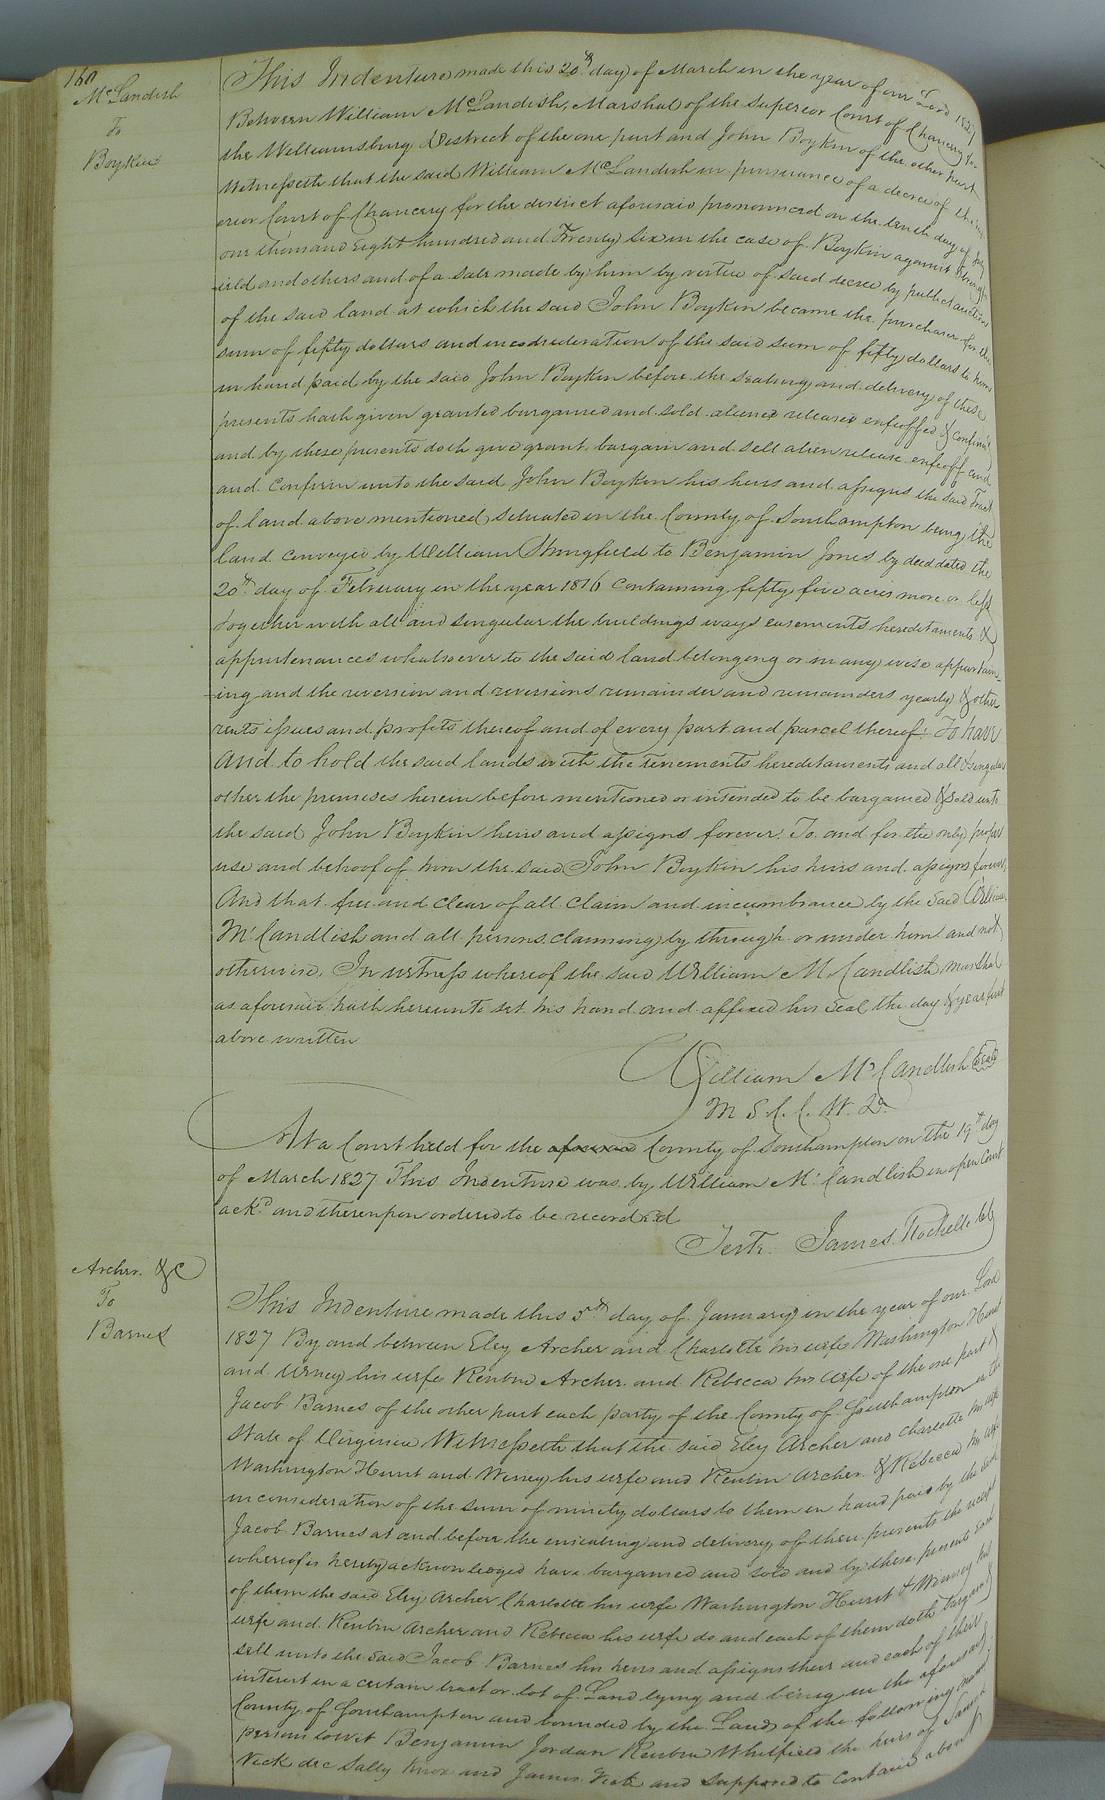 160
McLandish
To
Boykin
This Indenture made this 20th day of March in the year of our Lord 1827
Between William McLandish, Marshal of the Superior Court of Chancery for
the Williamsburg District of the one part and John Boykin of the other part
Witnesseth that the said William McLandish in pursuance of a decree of the
erior Court of Chancery for the district aforesaid pronounced on the tenth day of July
one thousand Eight hundred and Twenty six in the case of Boykin against
ield and others and of a sale made by him by virtue of said decree by public auction
of the said land at which the said John Boykin became the purchaser for the
sum of fifty dollars and in consideration of the said sum of fifty dollars to him
in hand paid by the said John Boykin before the sealing and delivery of these
presents hath given granted bargained and sold aliened released enfeoffed & confirmd
and by these presents doth give grant bargain and sell alien release enfeoff and
and Confirm unto the said John Boykin his heirs and assigns the said Tract
of land above mentioned situated in the County of Southampton being the
land conveyed by William Stringfield to Benjamin Jones by deed dated the
20th day of February in the year 1816 Containing fifty five acres more or less
together with all and singular the buildings ways easements hereditaments &
appurtenances whatsoever to the said land belonging or in any wise appurtain-
-ing and the reversion and reversions remainder and remainders yearly & other
rents issues and profits thereof and of every part and parcel thereof: To have
And to hold the said lands with the tenements hereditaments and all & singular
other the premises herein before mentioned or intended to be bargained & sold unto
the said John Boykin heirs and assigns forever: To and for the only proper
use and behoof of him the said John Boykin his heirs and assigns forever,
And that free and clear of all claim and incumbrance by the said William
McCandlish and all persons claiming by through or under him and not
otherwise, In witness whereof the said William McCandlish marshal
as aforesaid hath hereunto set his hand and affixed his seal the day & year first
above written
William McCandlish Seal
M. S. C. C. W. D.
At a Court held for the aforesaid County of Southampton on the 19th day
of March 1827 This Indenture was by William McCandlish in open Court
ackd and thereupon ordered to be recorded
Teste. James Rochelle Clk
Archer &C
To
Barnes
This Indenture made this 5th day of January in the year of our Lord
1827 By and between Eley Archer and Charlotte his wife Washington Hurst
and Urney his wife Reubin Archer and Rebecca his wife of the one part &
Jacob Barnes of the other part each party of the County of Southampton in the
State of Virginia Witnesseth that the said Eley Archer and Charlotte his wife
Washington Hurst and Winney his wife and Reubin Archer & Rebecca his wife
in consideration of the sum of ninety dollars to them in hand paid by the said
Jacob Barnes at and before the ensealing and delivery of these presents the receipt
whereof is hereby acknowledged have bargained and sold and by these presents each
of them the said Eley Archer Charlotte his wife Washington Hurst & Winney his
wife and Reubin Archer and Rebecca his wife do and each of them doth bargain
sell unto the said Jacob Barnes his heirs and assigns their and each of their
interest in a certain tract or lot of Land lying and being in the aforesaid
County of Southampton and bounded by the Lands of the following named
persons towit Benjamin Jordan Reubin Whitfield the heirs of
Vick dec Sally Knox and James Vick and supposed to contain about